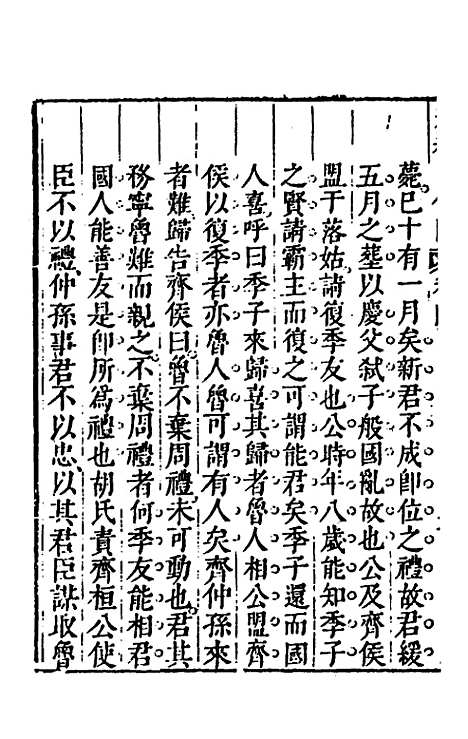 薨已十有一月矣新君不成卽位之禮故君緩
五月之塟以慶父弑子般國亂故也公及齊侯
盟于落姑請復季友也公時年八歲能知季子
之賢請霸主而復之可謂能君矣季子還而國
人喜呼曰季子來歸喜其歸者魯人相公盟齊
侯以復季者亦魯人魯可謂有人矣齊仲孫來
者難歸告齊侯曰魯不棄周禮未可動也君其
務寧魯難而親之不棄周禮者何季友能相君
國人能善友是卽所為禮也胡氏責齊桓公使
臣不以禮仲孫事君不以忠以其君臣謀取魯